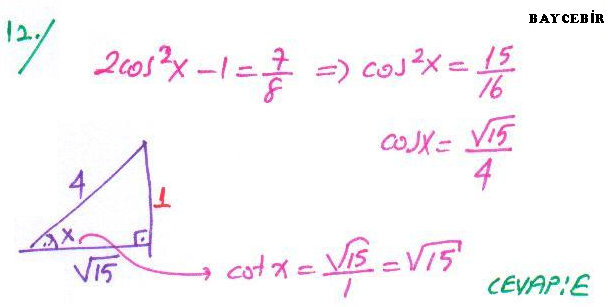 BAYCEBİR
12./
2cos²x - 1 = 7/8 ⇒ cos²x = 15/16
cosx = √15/4
4
1
x
√15
cotx = √15/1 = √15
CEVAP:E